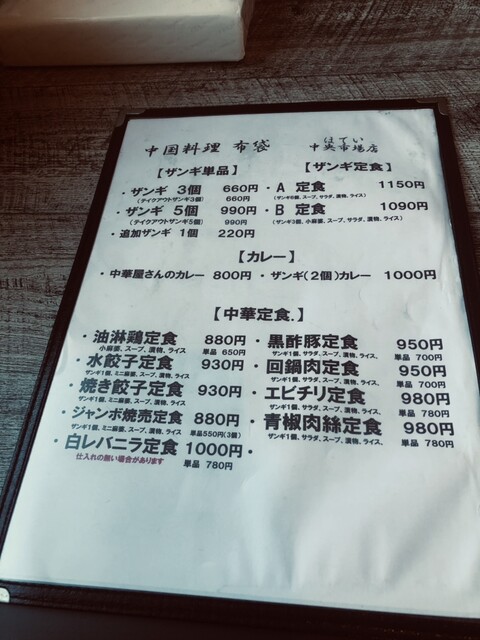 中国料理 布袋 ほてい 中央市場店
【ザンギ単品】
・ザンギ 3個 660円
(テイクアウトザンギ3個) 660円
・ザンギ 5個 990円
(テイクアウトザンギ5個) 990円
・追加ザンギ 1個 220円
【ザンギ定食】
・A 定食 1150円
(ザンギ5個、スープ、サラダ、漬物、ライス)
・B 定食 1090円
(ザンギ3個、小麻婆、スープ、サラダ、漬物、ライス)
【カレー】
・中華屋さんのカレー 800円 ・ザンギ(2個)カレー 1000円
【中華定食.】
・油淋鶏定食 880円
小麻婆、スープ、漬物、ライス 単品 650円
・水餃子定食 930円
ザンギ1個、ミニ麻婆、スープ、漬物、ライス
・焼き餃子定食 930円
ザンギ1個、ミニ麻婆、スープ、漬物、ライス
・ジャンボ焼売定食 880円
ザンギ1個、ミニ麻婆、スープ、漬物、ライス 単品550円(3個)
・白レバニラ定食 1000円・
仕入れの無い場合があります 単品 780円
・黒酢豚定食 950円
ザンギ1個、サラダ、スープ、漬物、ライス、 単品 700円
・回鍋肉定食 950円
ザンギ1個、サラダ、スープ、漬物、ライス、 単品 700円
・エビチリ定食 980円
ザンギ1個、サラダ、スープ、漬物、ライス、 単品 780円
・青椒肉絲定食 980円
ザンギ1個、サラダ、スープ、漬物、ライス、 単品 780円